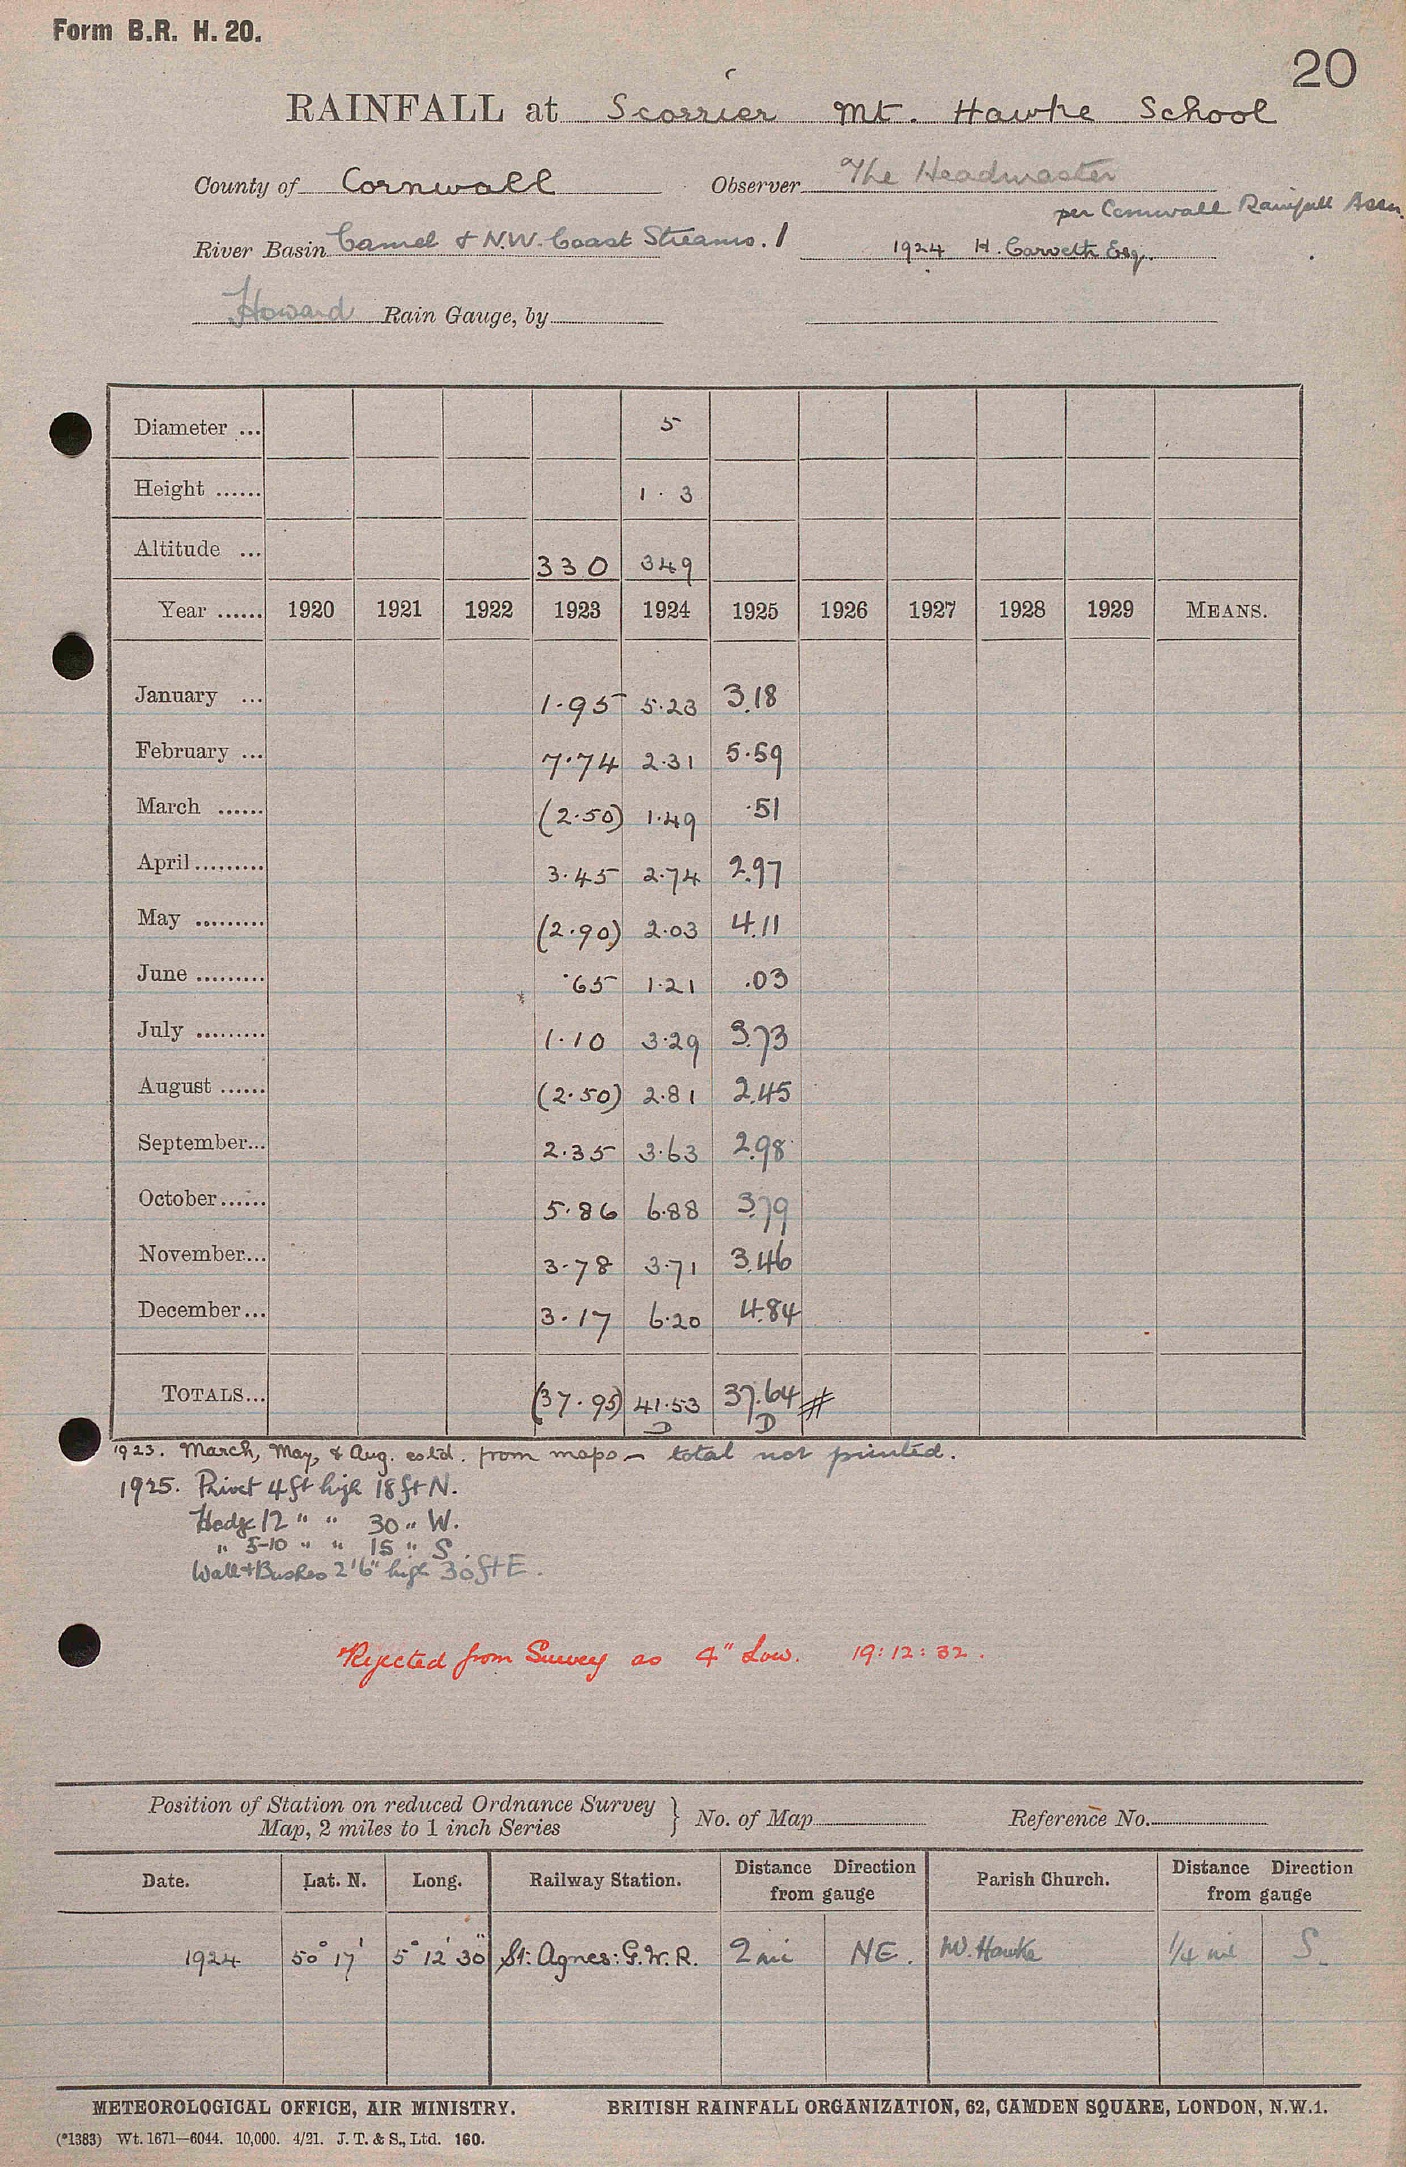 Form B.R. H. 20.
20
RAINFALL at Scorrier Mt. Hawke School
County of Cornwall Observer The Headmaster
per Cornwall Rainfall Assn.
River Basin Camel & N.W. Coast Streams. 1 1924 H. Carveth Esq.
Howard Rain Gauge, by
Diameter ... 5
Height ...... 1 . 3
Altitude ... 330 349
Year ...... 1920 1921 1922 1923 1924 1925 1926 1927 1928 1929 MEANS.
January ... 1.95 5.23 3.18
February ... 7.74 2.31 5.59
March ...... (2.50) 1.49 .51
April ......... 3.45 2.74 2.97
May ......... (2.90) 2.03 4.11
June ......... .65 1.21 .03
July ......... 1.10 3.29 3.73
August ...... (2.50) 2.81 2.45
September... 2.35 3.63 2.98
October...... 5.86 6.88 3.79
November... 3.78 3.71 3.46
December... 3.17 6.20 4.84
TOTALS... (37.95) 41.53 37.64 #
D D
1923. March, May, & Aug. estd. from maps – total not printed.
1925. Privet 4 ft high 18 ft N.
Hedge 12 " " 30 " W.
" 5-10 " " 15 " S.
Wall & Bushes 2'6" high 30 ft E.
Rejected from Survey as 4" Low. 19:12:32.
Position of Station on reduced Ordnance Survey
Map, 2 miles to 1 inch Series } No. of Map Reference No.
Date. Lat. N. Long. Railway Station. Distance Direction from gauge Parish Church. Distance Direction from gauge
1924 50° 17' 5° 12' 30" St. Agnes: G.W.R. 2 mi NE. Mt. Hawke 1/4 mi S.
METEOROLOGICAL OFFICE, AIR MINISTRY. BRITISH RAINFALL ORGANIZATION, 62, CAMDEN SQUARE, LONDON, N.W.1.
(*1383) Wt. 1671—6044. 10,000. 4/21. J. T. & S., Ltd. 160.